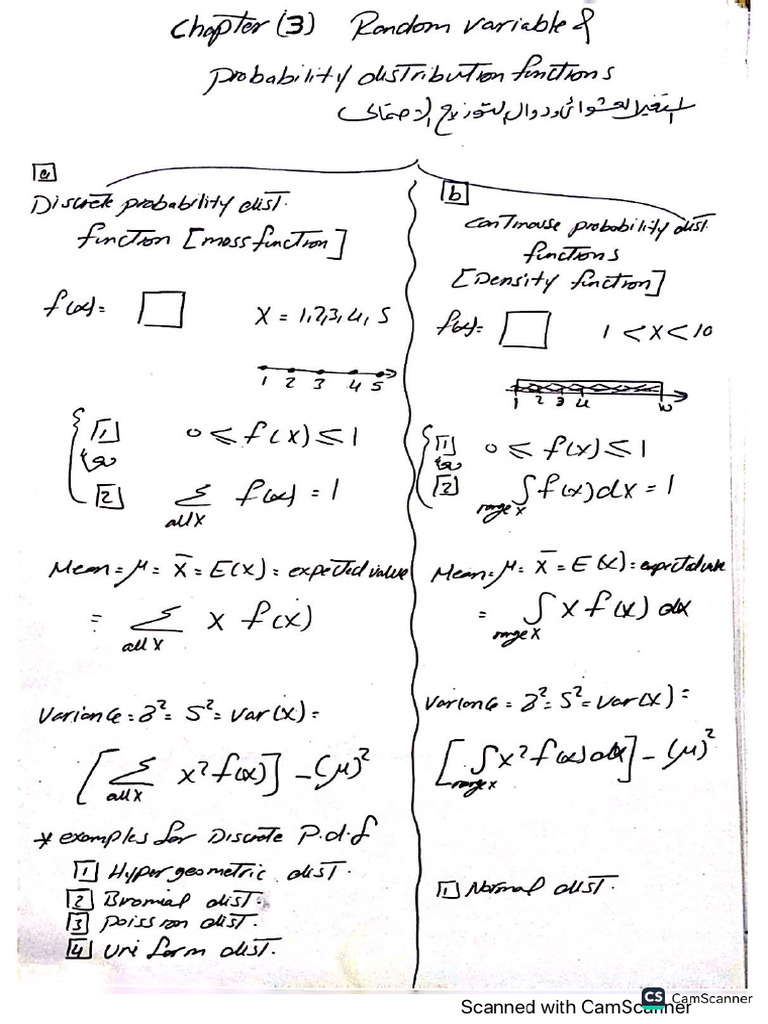 Chapter (3) Random variable &
probability distribution functions
المتغير العشوائى ودوال التوزيع الاحتمالى
a
Discrete probability dist.
function [mass function]
f(x) = □ X = 1,2,3,4,5
1 2 3 4 5
1 0 ≤ f(x) ≤ 1
2 Σ f(x) = 1
all X
Mean = μ = X̄ = E(X) = expected value
= Σ x f(x)
all X
Variance = δ² = S² = Var(X) =
[Σ x² f(x)] - (μ)²
all X
* examples for Discrete P.d.f
1 Hyper geometric dist.
2 Bromial dist.
3 poisson dist.
4 Uni form dist.
b
Continouse probability dist.
functions
[Density function]
f(x) = □ 1 < X < 10
1 2 3 4 10
1 0 ≤ f(x) ≤ 1
2 ∫ f(x) dx = 1
range X
Mean = μ = X̄ = E(X) = expected value
= ∫ x f(x) dx
range X
Variance = δ² = S² = Var(X) =
[∫ x² f(x) dx] - (μ)²
range X
1 Normal dist.
CS CamScanner
Scanned with CamScanner